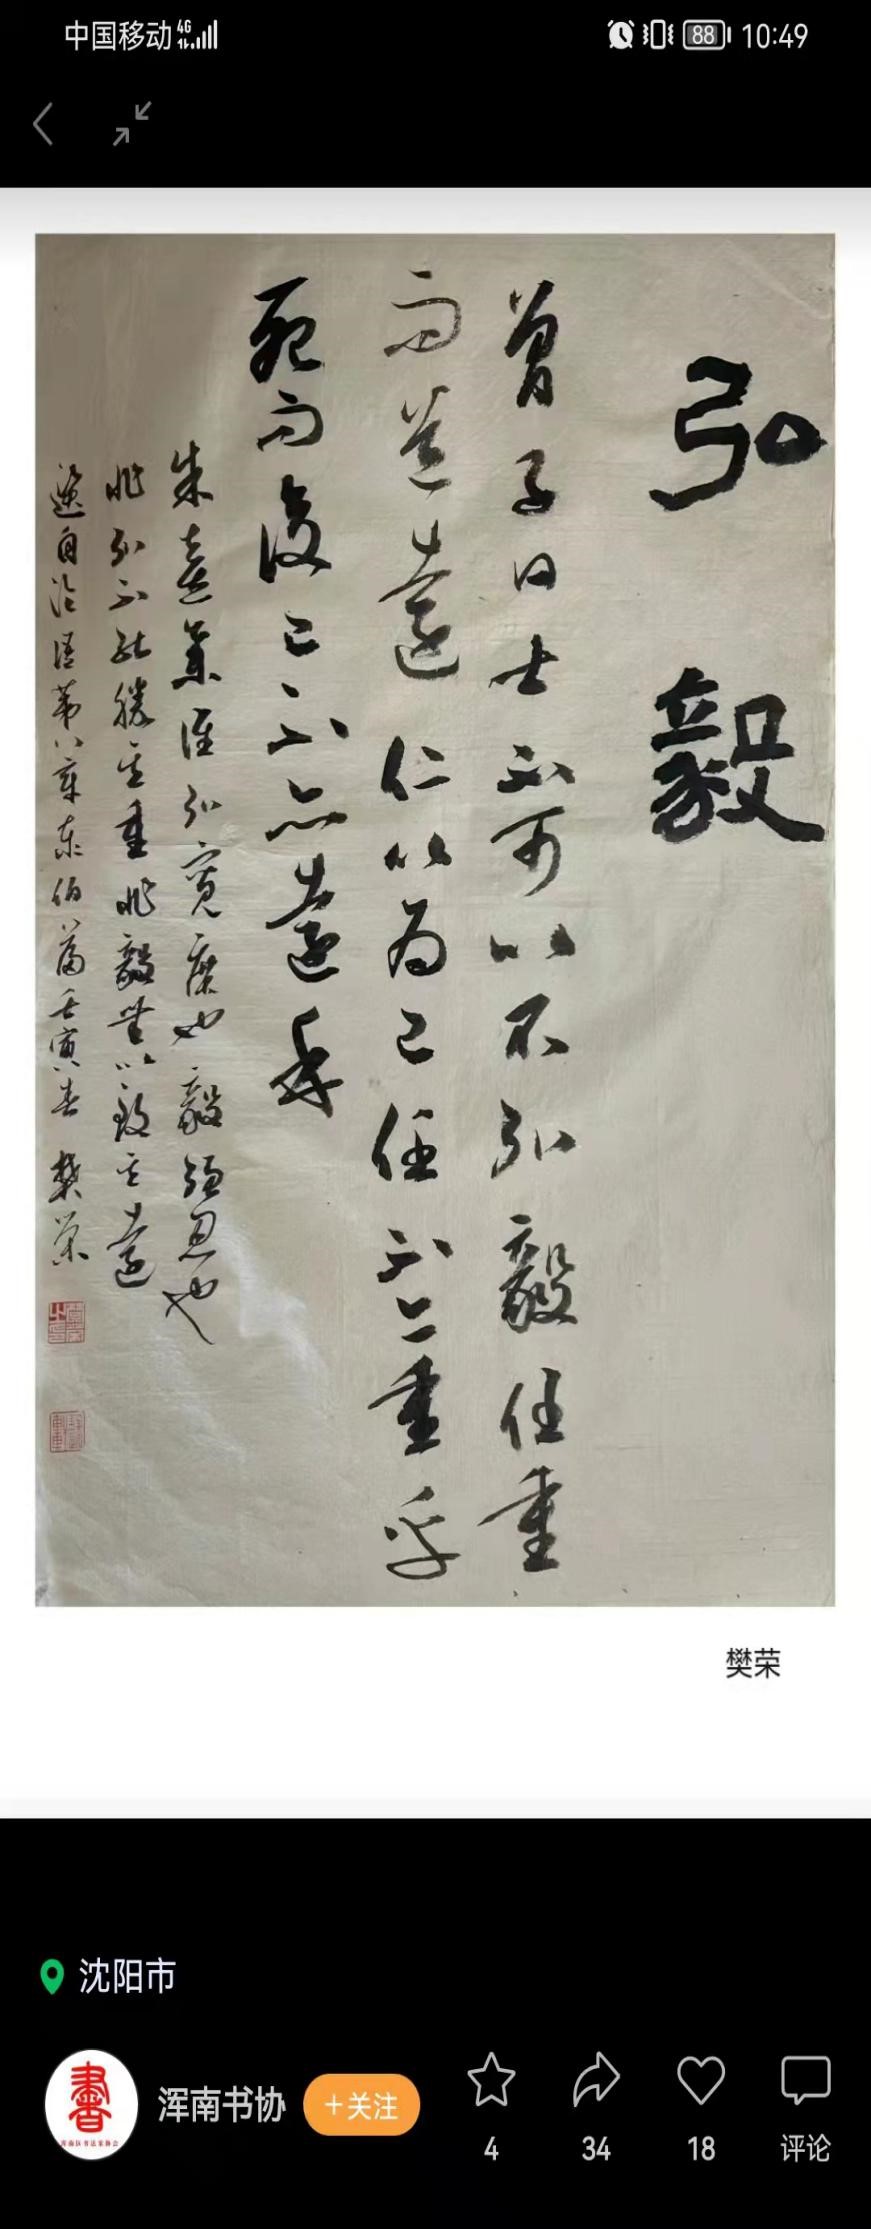 中国移动 4G 88 10:49
弘毅
曾子曰士不可以不弘毅任重
而道远仁以为己任不亦重乎
死而后已不亦远乎
朱熹集注弘宽广也毅强忍也
非弘不能胜其重非毅无以致其远
选自论语第八章泰伯篇壬寅春 樊荣
樊荣
沈阳市
書
浑南区书法家协会
浑南书协
+关注
4
34
18
评论